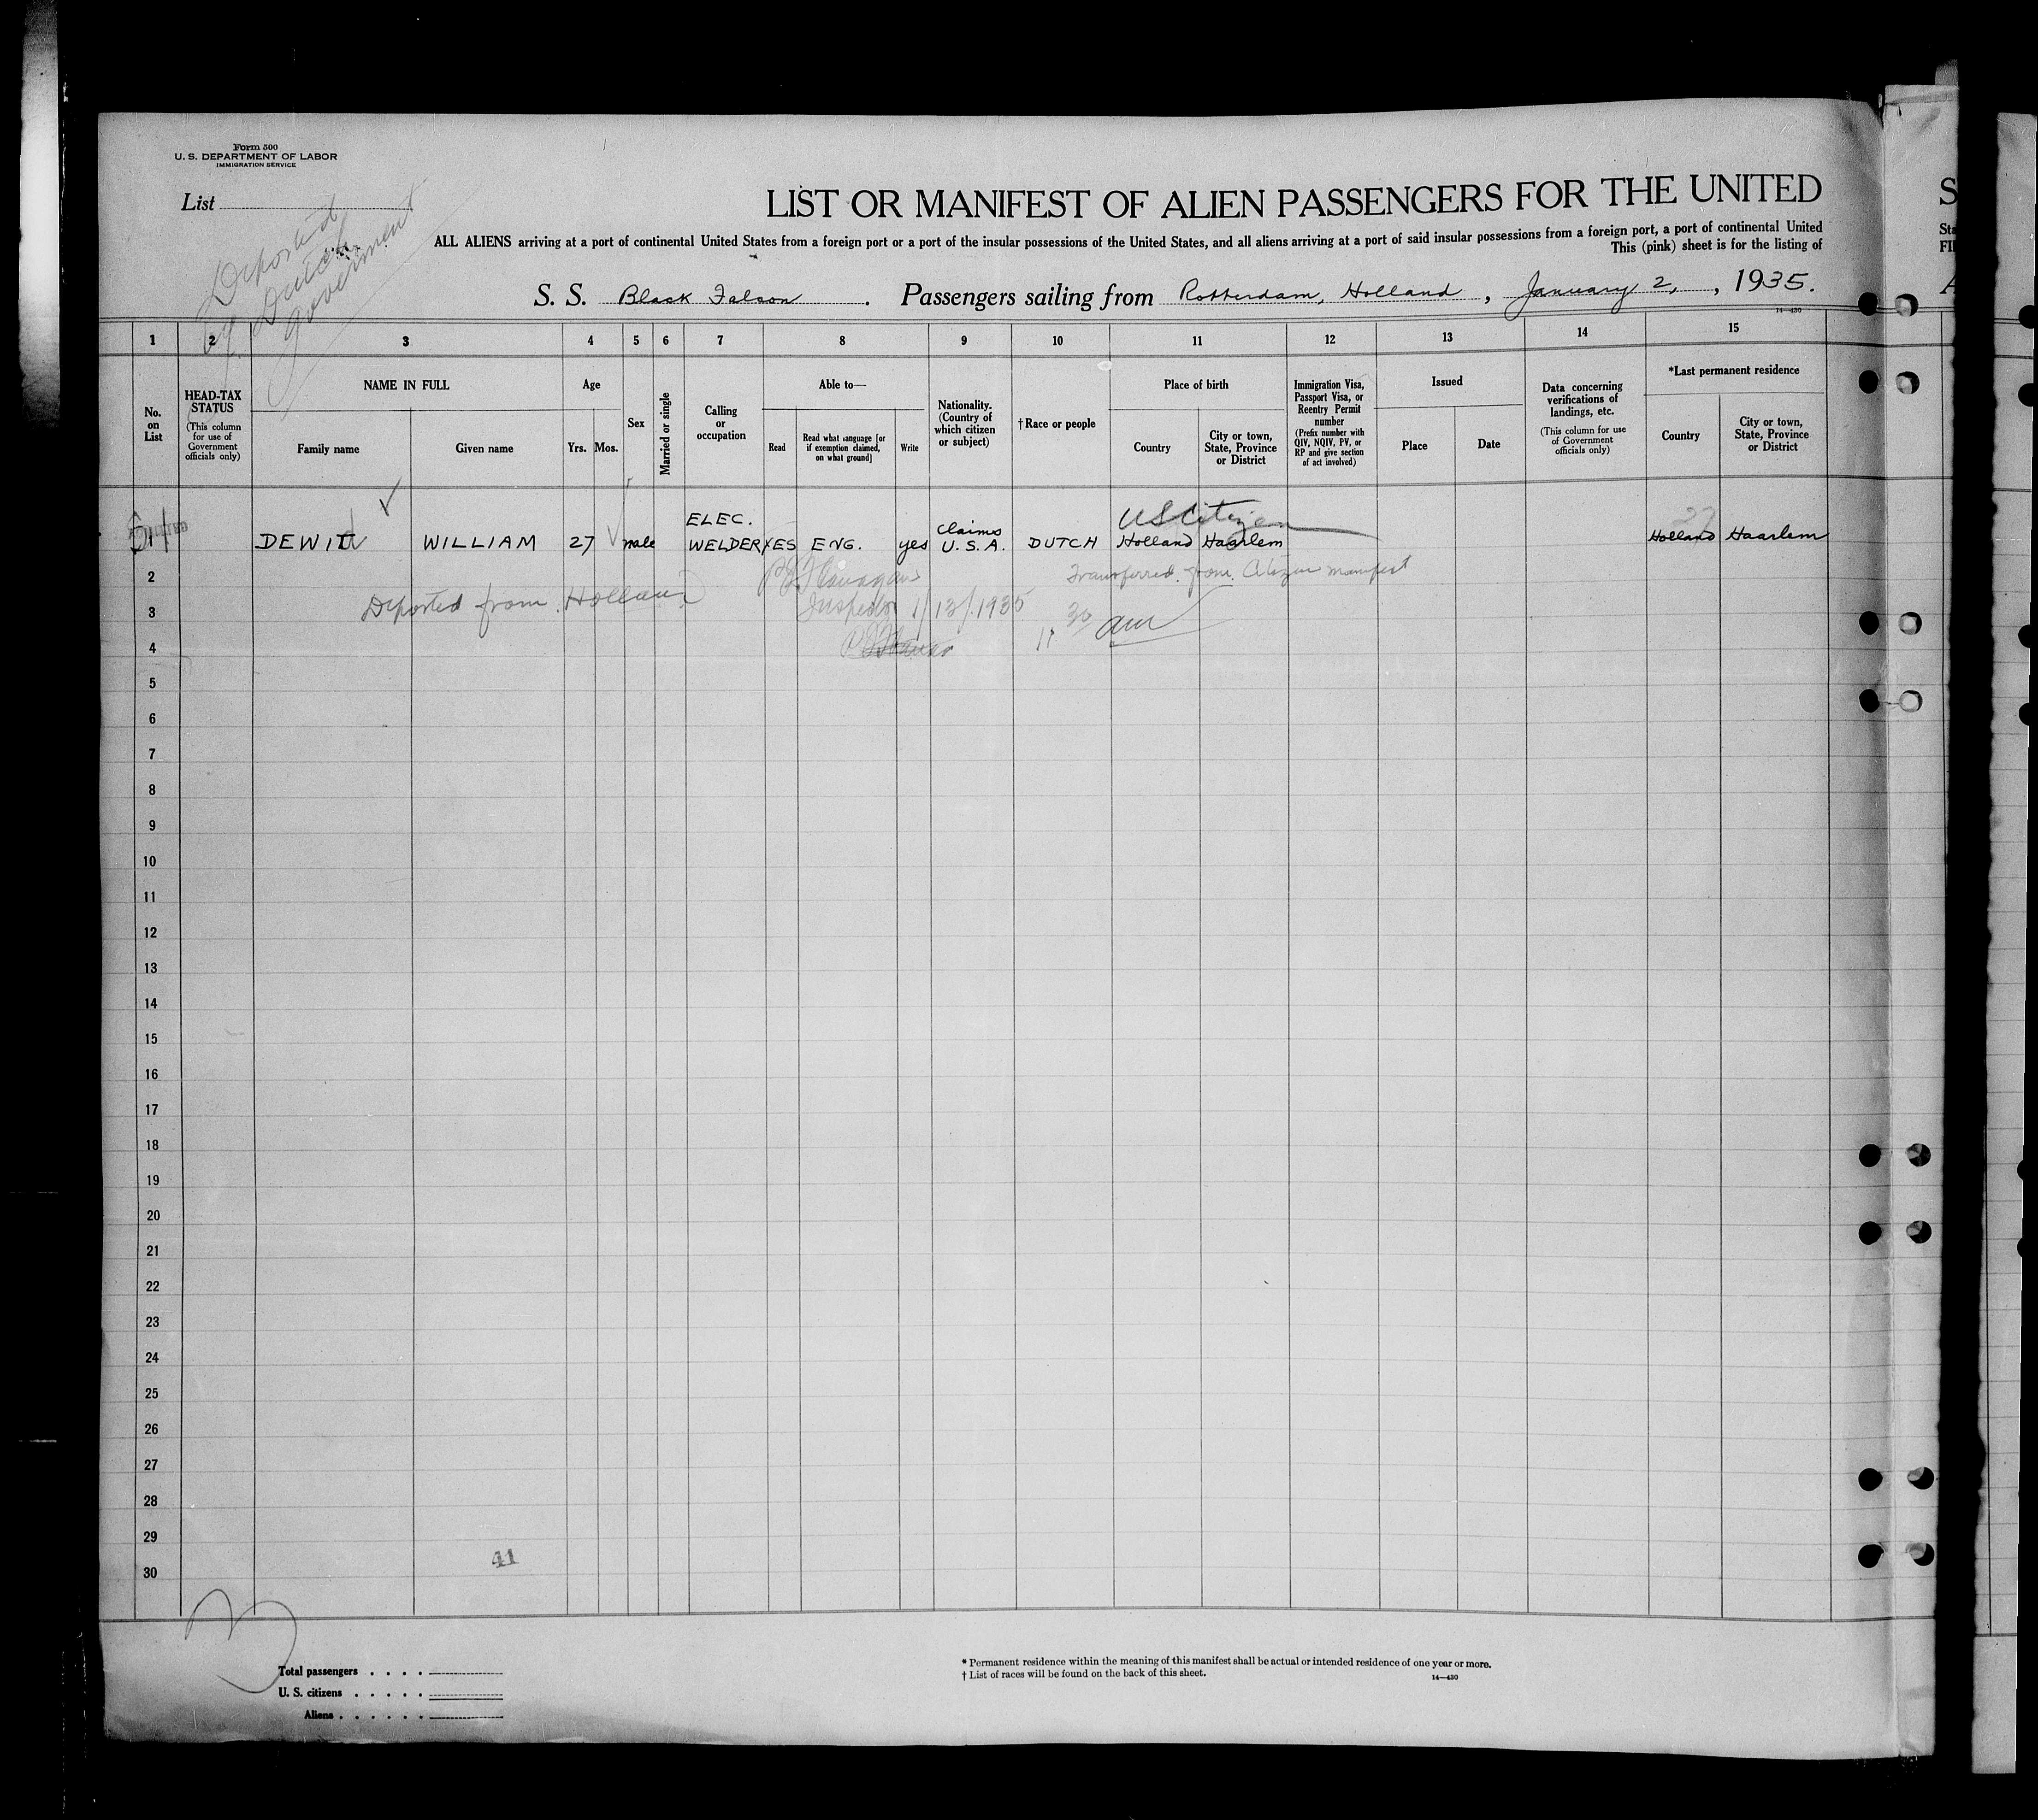 Form 500
U. S. DEPARTMENT OF LABOR
IMMIGRATION SERVICE
List
Deported
by Dutch
Government
LIST OR MANIFEST OF ALIEN PASSENGERS FOR THE UNITED
ALL ALIENS arriving at a port of continental United States from a foreign port or a port of the insular possessions of the United States, and all aliens arriving at a port of said insular possessions from a foreign port, a port of continental United
This (pink) sheet is for the listing of
S. S. Black Falcon . Passengers sailing from Rotterdam, Holland , January 2, , 1935.
14—430
1 2 3 4 5 6 7 8 9 10 11 12 13 14 15
No. on List
HEAD-TAX STATUS
(This column for use of Government officials only)
NAME IN FULL
Family name
Given name
Age
Yrs. Mos.
Sex
Married or single
Calling or occupation
Able to—
Read
Read what language [or if exemption claimed, on what ground]
Write
Nationality. (Country of which citizen or subject)
†Race or people
Place of birth
Country
City or town, State, Province or District
Immigration Visa, Passport Visa, or Reentry Permit number
(Prefix number with QIV, NQIV, PV, or RP and give section of act involved)
Issued
Place
Date
Data concerning verifications of landings, etc.
(This column for use of Government officials only)
*Last permanent residence
Country
City or town, State, Province or District
ADMITTED
US Citizen
1 DEWITT WILLIAM 27 male ELEC. WELDER YES ENG. yes Claims U.S.A. DUTCH Holland Haarlem Holland Haarlem
27
2 Transferred from Citizen manifest
3 Deported from Holland Inspector 1/13/1935
11 30 am
4
5
6
7
8
9
10
11
12
13
14
15
16
17
18
19
20
21
22
23
24
25
26
27
28
29
30
41
3
Total passengers
U. S. citizens
Aliens
* Permanent residence within the meaning of this manifest shall be actual or intended residence of one year or more.
† List of races will be found on the back of this sheet.
14—430